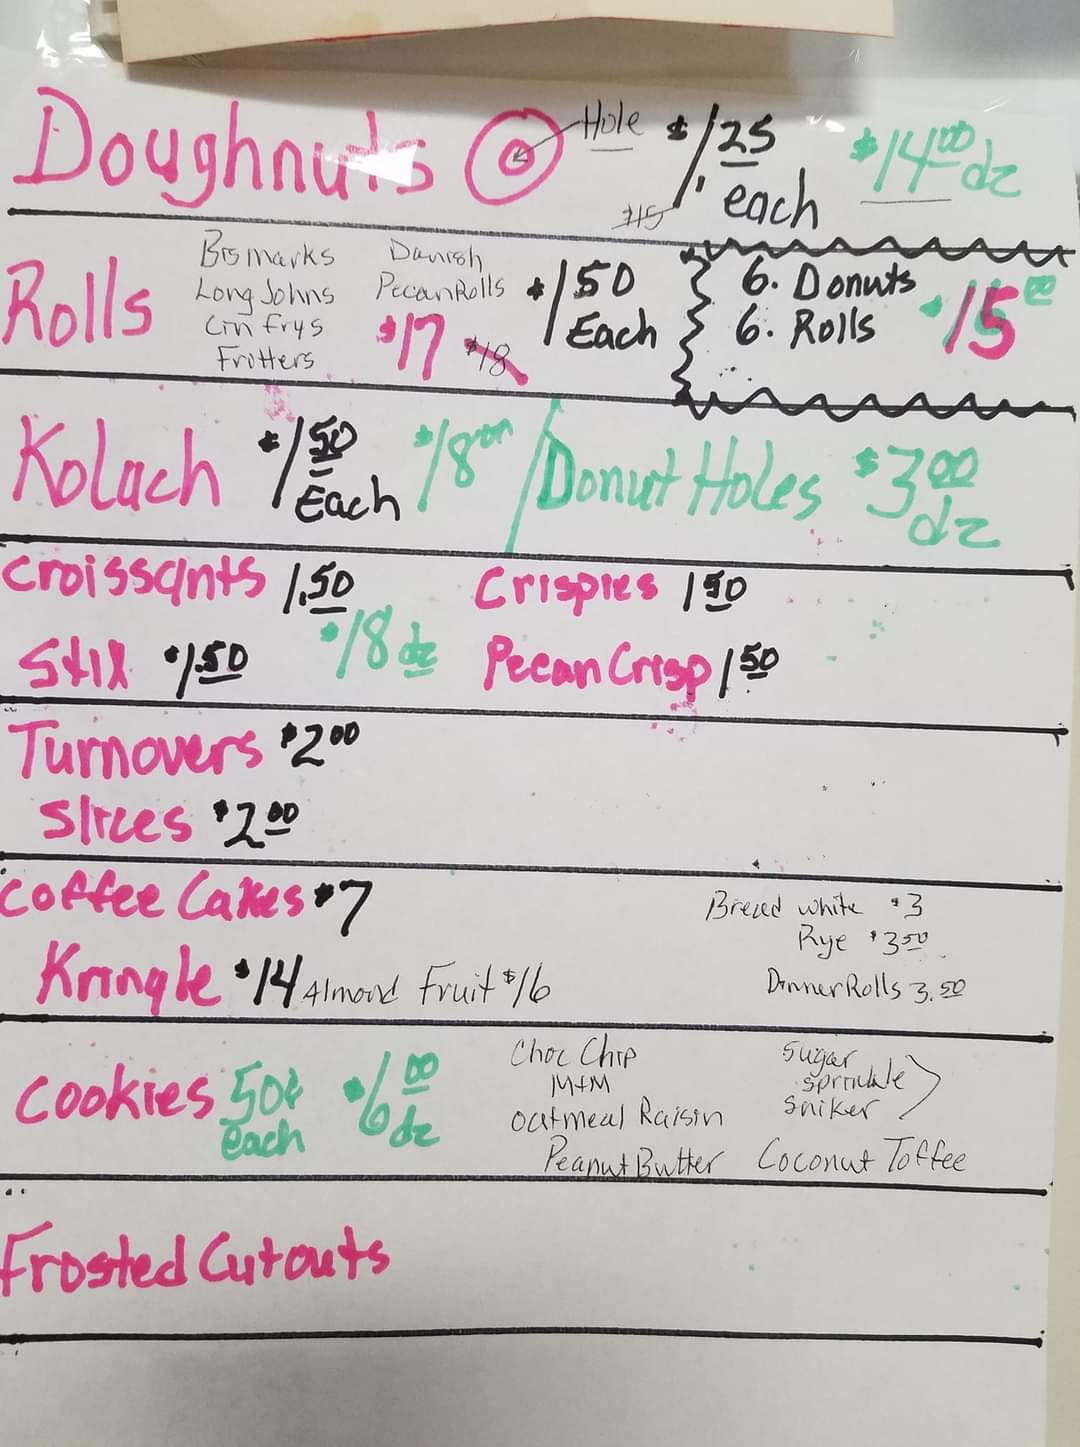 Doughnuts Hole $1.25 each $14.00 dz
$15
Rolls Bismarks Danish $1.50 Each 6. Donuts $15.00
Long Johns Pecan Rolls 6. Rolls
Cin frys $17 $18
Fritters
Kolach $1.50 Each $18.00 / Donut Holes $3.00 dz
Croissants 1.50 Crispies 1.50
Stix $1.50 $18 dz Pecan Crisp 1.50
Turnovers $2.00
Slices $2.00
Coffee Cakes $7 Bread white $3
Rye $3.50
Kringle $14 Almond Fruit $16 Dinner Rolls 3.50
Cookies 50¢ each $6.00 dz Choc Chip Sugar
M+M sprinkle
oatmeal Raisin sniker
Peanut Butter Coconut Toffee
Frosted Cutouts